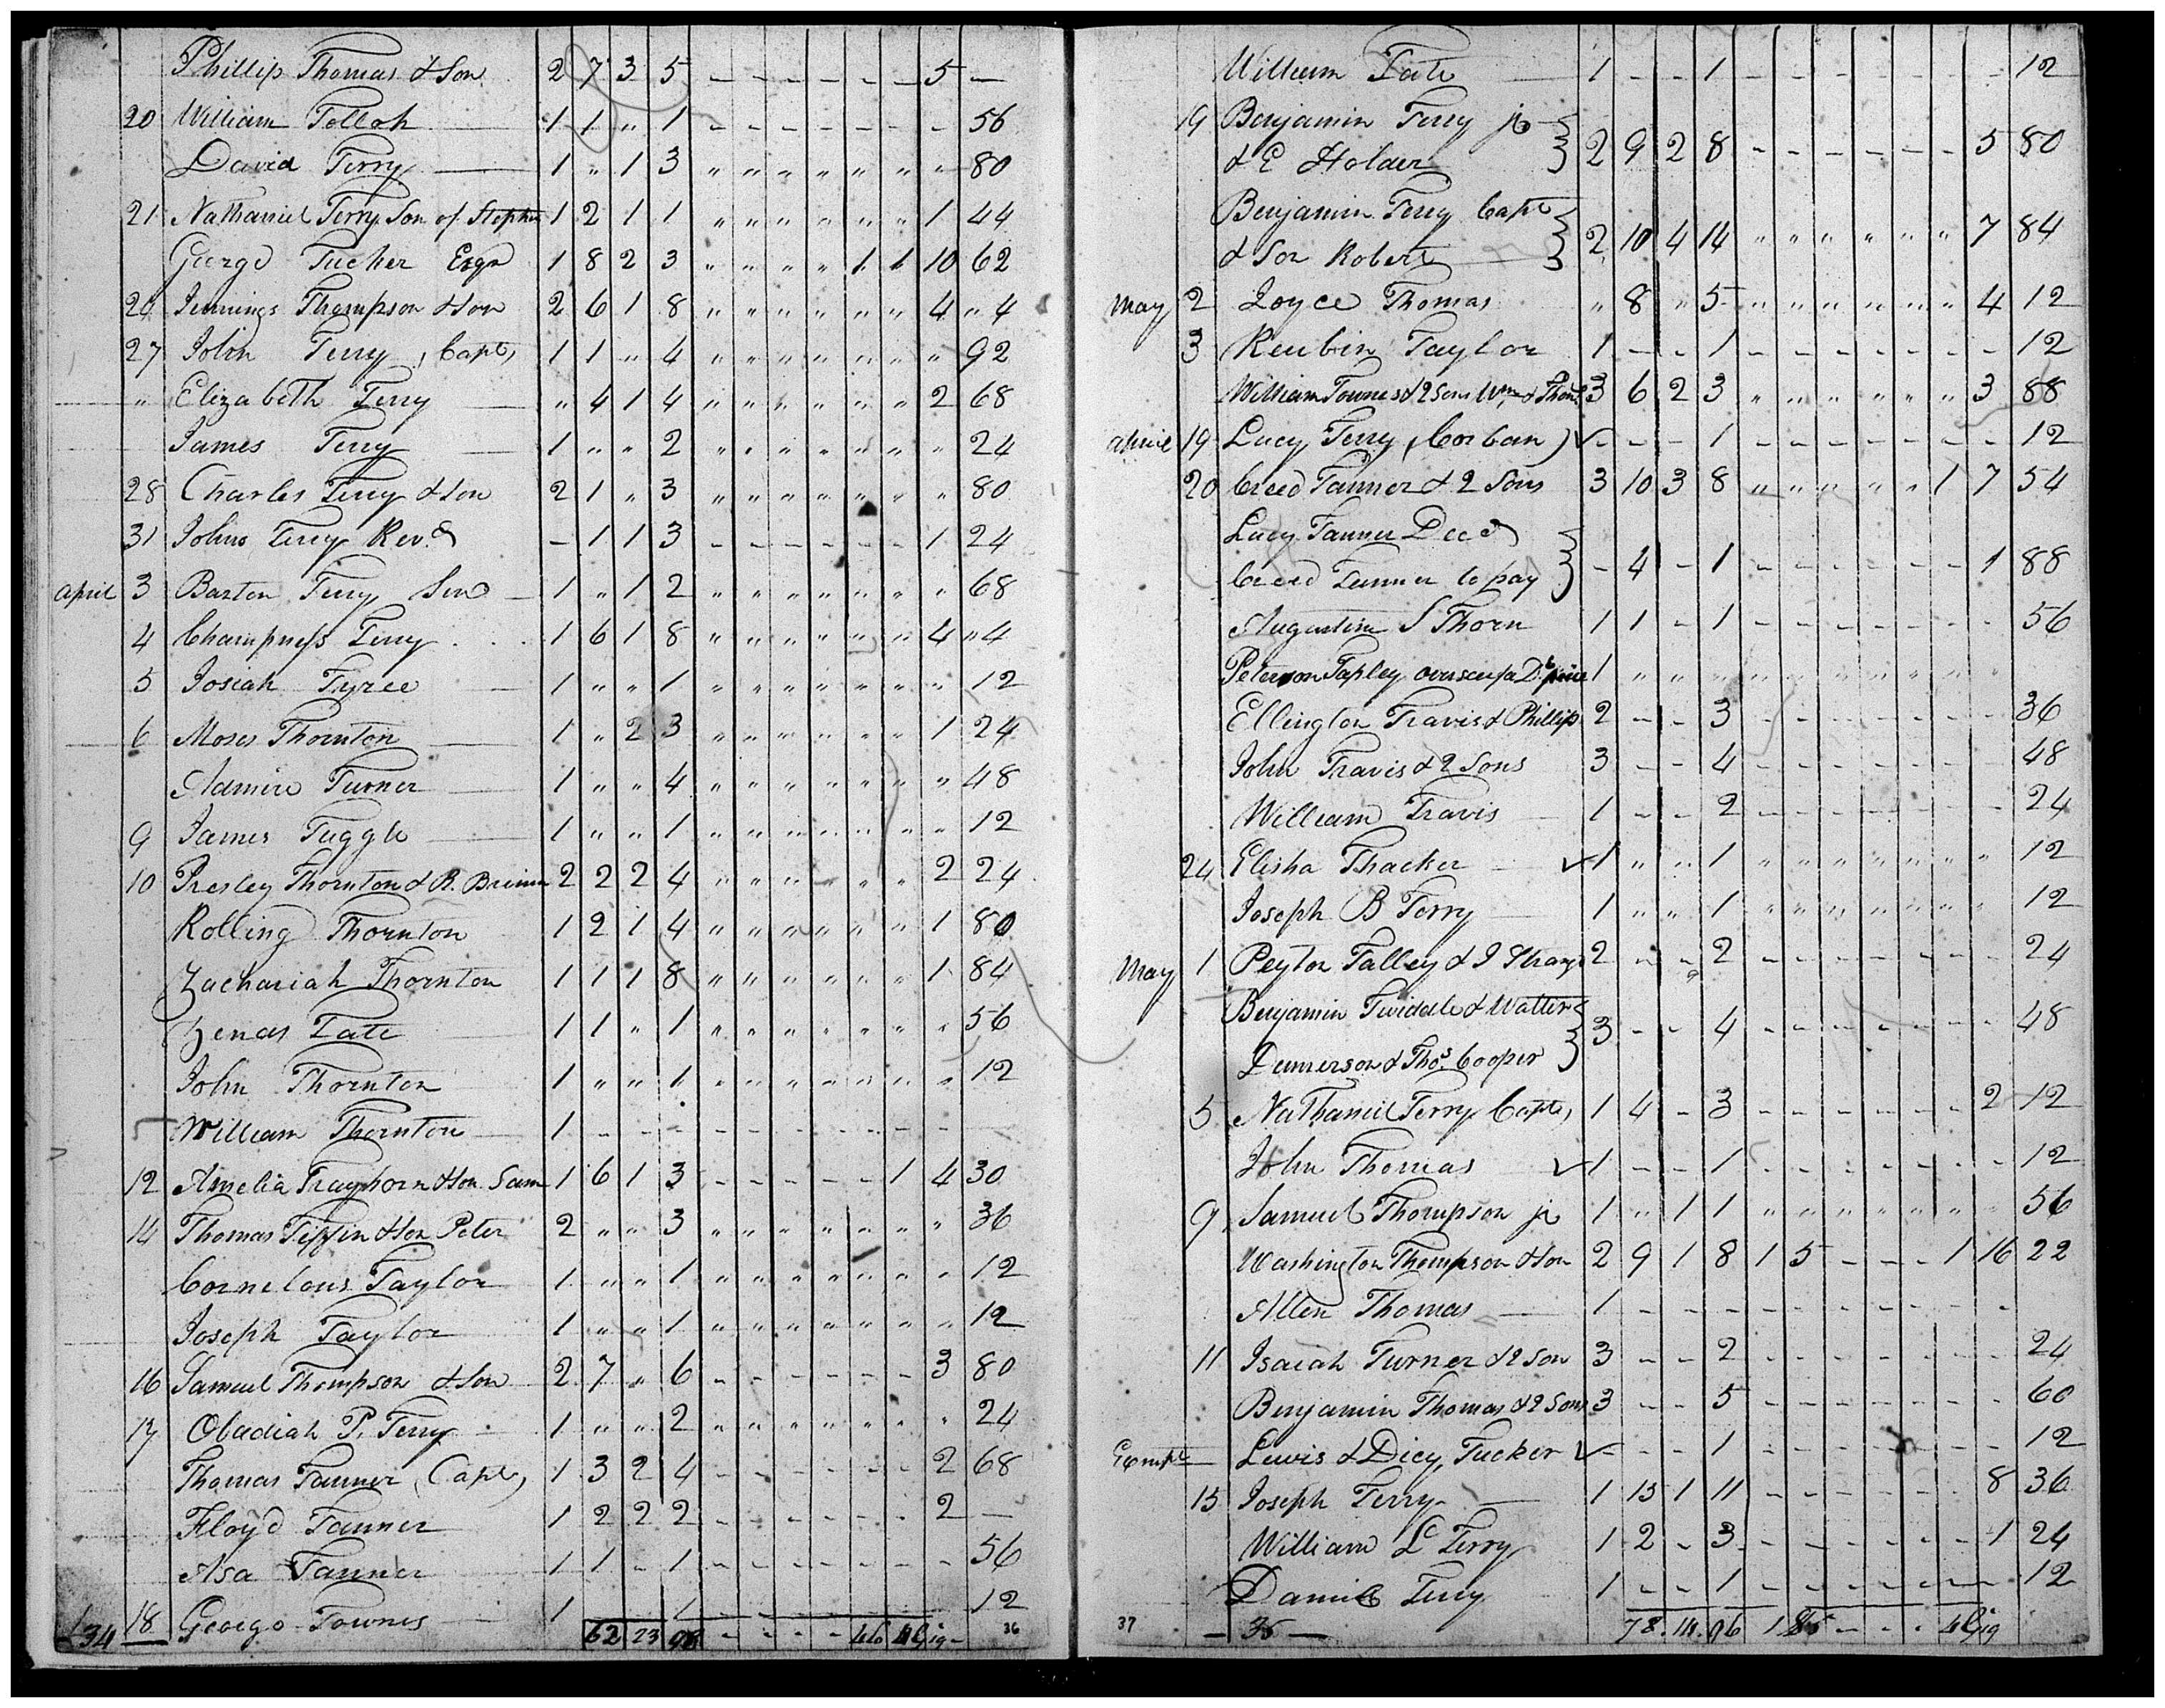 Phillip Thomas & Son 2 7 3 5 - - - - - - 5 -
20 William Tolloh 1 1 " 1 - - - - - - - 56
David Terry 1 " 1 3 " " " " " " " 80
21 Nathaniel Terry Son of Stephen 1 2 1 1 " " " " " " 1 44
George Tucker Esqr 1 8 2 3 " " " " 1 1 10 62
24 Jennings Thompson & Son 2 6 1 8 " " " " " " 4 " 4
27 John Terry, Capt, 1 1 " 4 " " " " " " " 92
" Elizabeth Terry " 4 1 4 " " " " " " 2 68
James Terry 1 " " 2 " " " " " " " 24
28 Charles Terry & Son 2 1 " 3 " " " " " " " 80
31 John Terry Revd - 1 1 3 - - - - - - 1 24
April 3 Barton Terry Senr 1 " 1 2 " " " " " " " 68
4 Champness Terry 1 6 1 8 " " " " " " 4 " 4
5 Josiah Tyree 1 " " 1 " " " " " " " 12
6 Moses Thornton 1 " 2 3 " " " " " " 1 24
Admire Turner 1 " " 4 " " " " " " " 48
9 James Tuggle 1 " " 1 " " " " " " " 12
10 Presley Thornton & R. 2 2 2 4 " " " " " " 2 24
Rolling Thornton 1 2 1 4 " " " " " " 1 80
Zachariah Thornton 1 1 1 8 " " " " " " 1 84
Zenas Tate 1 1 " 1 " " " " " " " 56
John Thornton 1 " " 1 " " " " " " " 12
William Thornton 1 - - - - - - - - - - -
12 Amelia Trayhorn & Son Sam 1 6 1 3 - - - - - 1 4 30
14 Thomas Tiffin & Son Peter 2 " " 3 " " " " " " " 36
Cornelous Taylor 1 " " 1 " " " " " " " 12
Joseph Taylor 1 " " 1 " " " " " " " 12
16 Samuel Thompson & Son 2 7 " 6 - - - - - - 3 80
17 Obadiah P. Terry 1 " " 2 " " " " " " " 24
Thomas Tanner (Capt, 1 3 2 4 - - - - - - 2 68
Floyd Tanner 1 2 2 2 - - - - - - 2 -
Asa Tanner 1 1 - 1 - - - - - - - 56
18 George Townes 1 1 - - - - - - - 12
34 62 23 98 - - - - 36
William Tate 1 - - 1 - - - - - - - 12
19 Benjamin Terry jr
& E Holder 2 9 2 8 - - - - - - 5 80
Benjamin Terry Capt
& Son Robert 2 10 4 14 " " " " " " 7 84
May 2 Joyce Thomas " 8 " 5 " " " " " " 4 12
3 Reubin Taylor 1 - - 1 - - - - - - - 12
William Townes & 2 Sons Wm & Thos 3 6 2 3 " " " " " " 3 88
Aprile 19 Lucy Terry, (Corban) ✓ - - - 1 - - - - - - - 12
20 Creed Tanner & 2 Sons 3 10 3 8 " " " " " 1 7 54
Lucy Tanner Decd
Creed Tanner to pay - 4 - 1 - - - - - - 1 88
Augustine S Thorn 1 1 - 1 - - - - - - - 56
Peterson Tapley 1 " " " " " " " " " "
Ellington Travis & Phillip 2 - - 3 - - - - - - - 36
John Travis & 2 Sons 3 - - 4 - - - - - - - 48
William Travis 1 - - 2 - - - - - - - 24
24 Elisha Thacker ✓ 1 " " 1 " " " " " " " 12
Joseph B Terry 1 " " 1 " " " " " " " 12
May 1 Peyton Talley & J 2 " " 2 - - - - - - - 24
Benjamin Twiddle & Walter
Damerson & Thos. Cooper 3 - - 4 - - - - - - - 48
5 Nathaniel Terry Capt, 1 4 - 3 - - - - - - 2 12
John Thomas ✓ 1 - - 1 - - - - - - - 12
9 Samuel Thompson jr 1 " 1 1 " " " " " " " 56
Washington Thompson & Son 2 9 1 8 1 5 - - - 1 16 22
Allen Thomas 1 - - - - - - - - - -
11 Isaiah Turner & 2 Son 3 - - 2 - - - - - - - 24
Benjamin Thomas & 2 Sons 3 - - 5 - - - - - - - 60
Exempt Lewis & Dicy Tucker ✓ - - - 1 - - - - - - - 12
15 Joseph Terry 1 13 1 11 - - - - - - 8 36
William L Terry 1 2 - 3 - - - - - - 1 24
Daniel Terry 1 - - 1 - - - - - - - 12
37 - 35 - 78. 14. 96 1